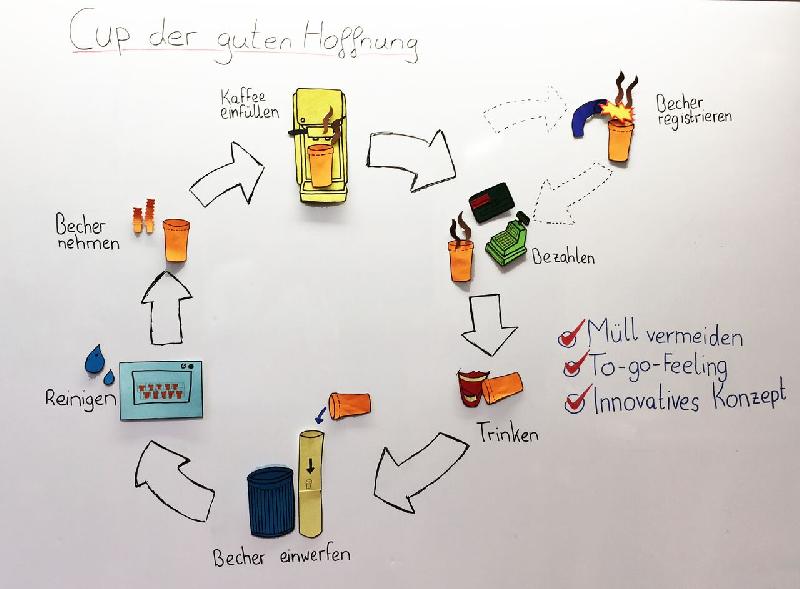 Cup der guten Hoffnung
Kaffee
einfüllen
Becher
registrieren
Becher
nehmen
Bezahlen
Müll vermeiden
To-go-Feeling
Innovatives Konzept
Reinigen
Trinken
Becher einwerfen